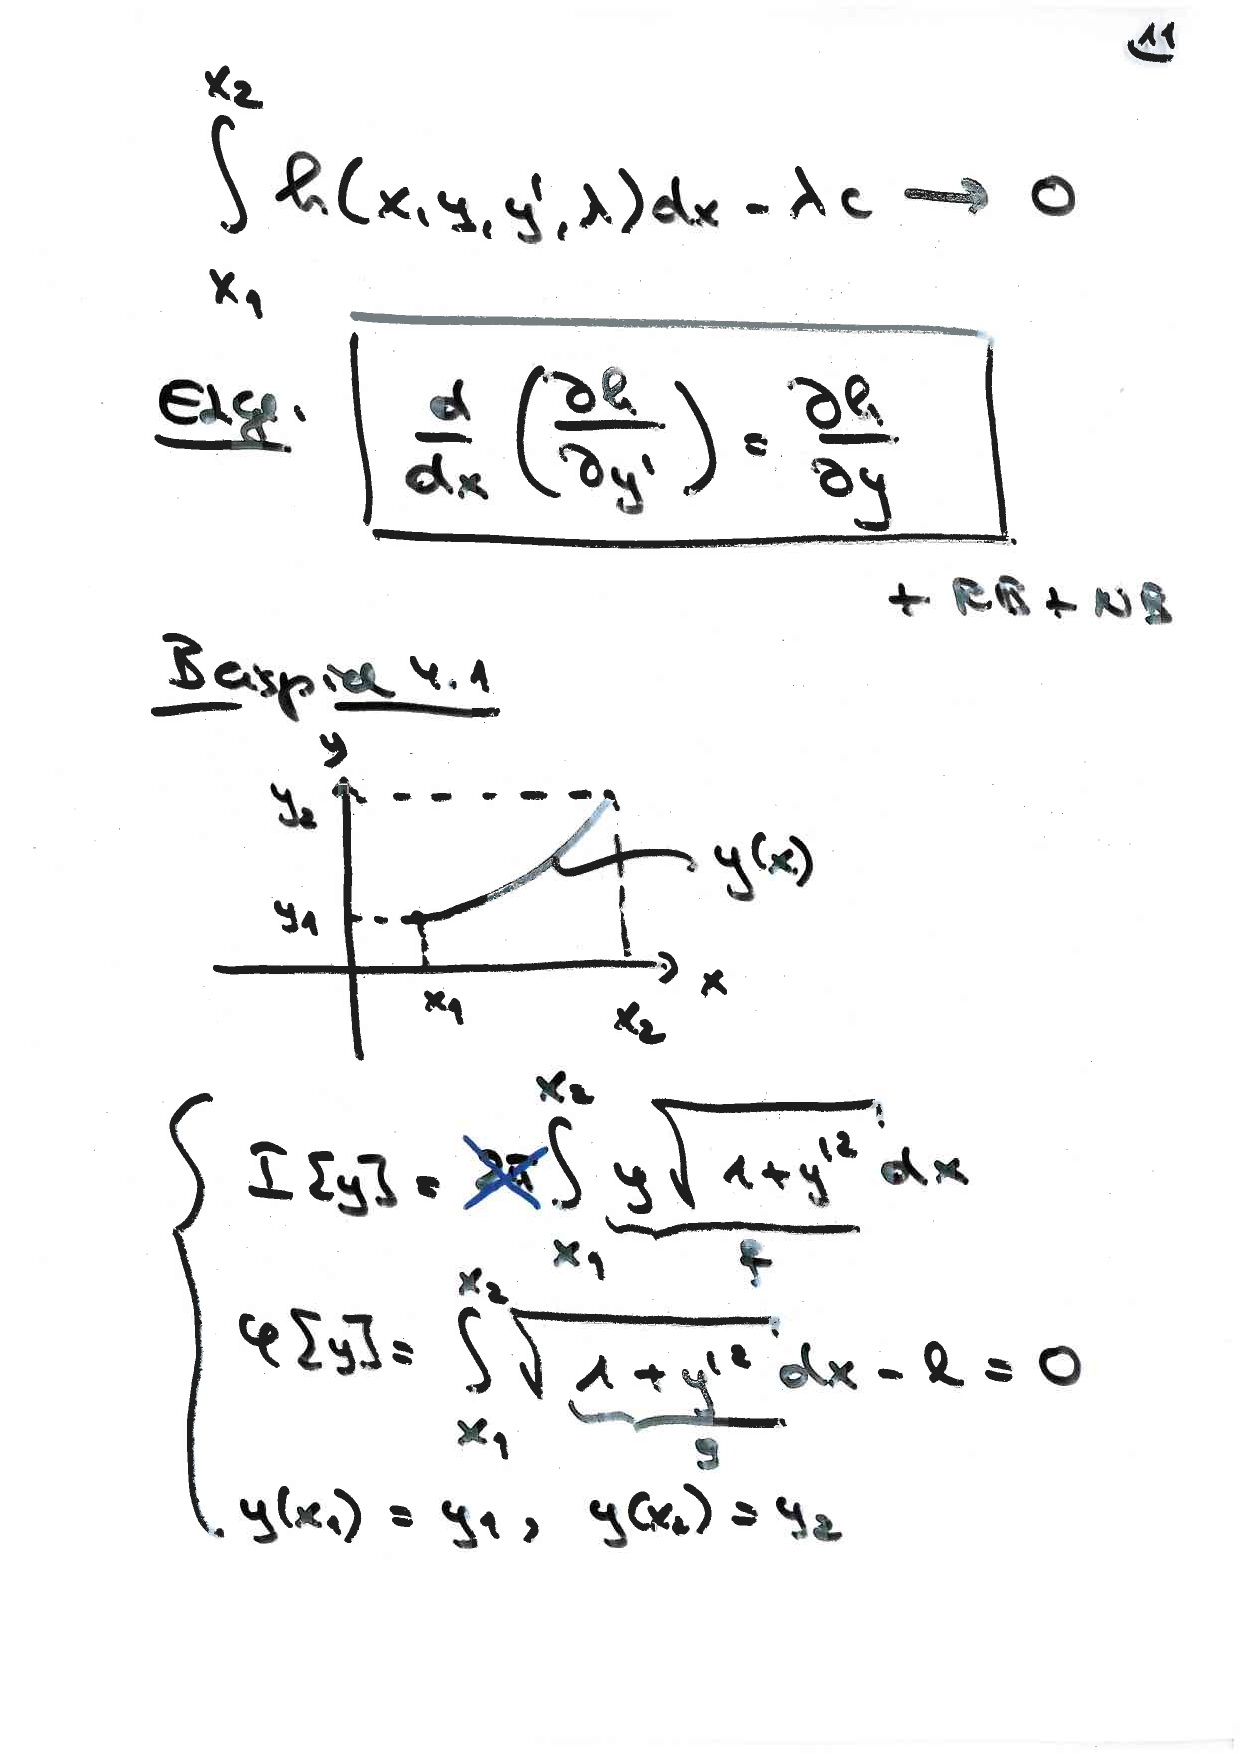 11
∫_{x₁}^{x₂} h(x, y, y', λ)dx - λc → 0
ELgl. d/dx (∂h/∂y') = ∂h/∂y
+ RB + NB
Beispiel 4.1
y
y₂
y(x)
y₁
x
x₁ x₂
I[y] = 2π ∫_{x₁}^{x₂} y√(1+y'²) dx
f
φ[y] = ∫_{x₁}^{x₂} √(1+y'²) dx - l = 0
g
y(x₁) = y₁, y(x₂) = y₂